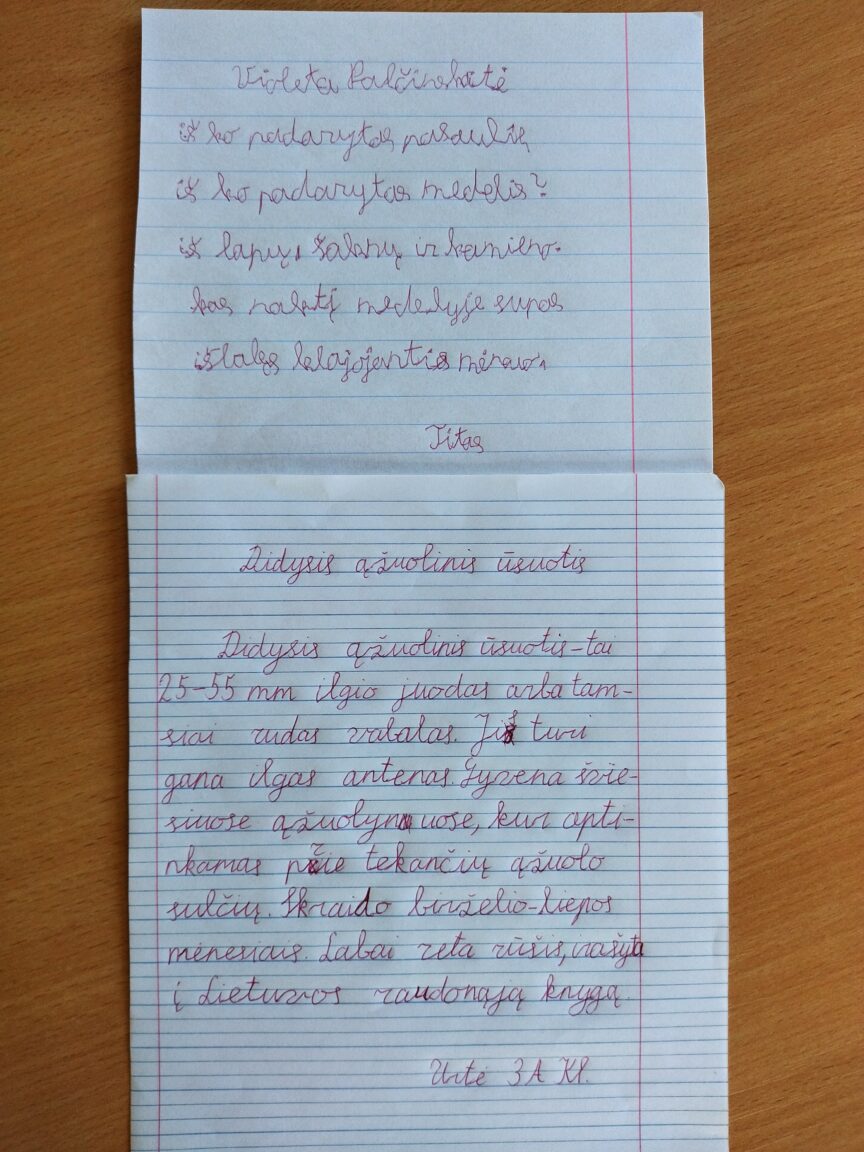 Violeta Palčinskaitė
iš ko padarytas pasaulis
iš ko padarytas medelis?
iš lapų, šaknų ir kamieno.
kas naktį medelyje supas
išlalęs kelajojantis mėnuo.
Titas
Didysis ąžuolinis ūsuotis
Didysis ąžuolinis ūsuotis-tai
25-55 mm ilgio juodas arba tam-
siai rudas vabalas. Jis turi
gana ilgas antenas. Gyvena švie-
siuose ąžuolynuose, kur apti-
nkamas prie tekančių ąžuolo
sulčių. Skraido birželio-liepos
mėnesiais. Labai reta rūšis, įrašyta
į Lietuvos raudonąją knygą.
Urtė 3A Kl.